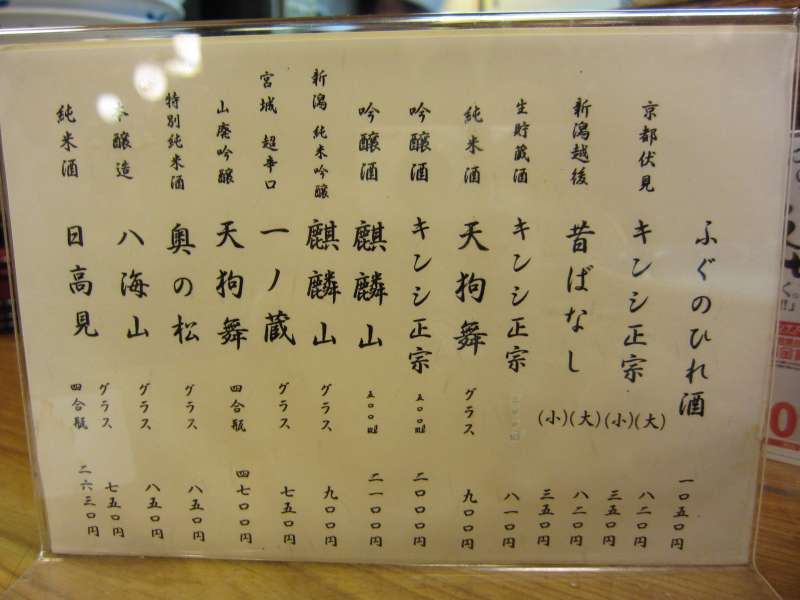 ふぐのひれ酒 一〇五〇円
京都伏見 キンシ正宗 (大) 八二〇円
(小) 三五〇円
新潟越後 昔ばなし (大) 八二〇円
(小) 三五〇円
生貯蔵酒 キンシ正宗 八一〇円
純米酒 天狗舞 グラス 九〇〇円
吟醸酒 キンシ正宗 五〇〇ml 二〇〇〇円
吟醸酒 麒麟山 五〇〇ml 二一〇〇円
新潟 純米吟醸 麒麟山 グラス 九〇〇円
宮城 超辛口 一ノ蔵 グラス 七五〇円
山廃吟醸 天狗舞 四合瓶 四七〇〇円
特別純米酒 奥の松 グラス 八五〇円
本醸造 八海山 グラス 八五〇円
純米酒 日高見 グラス 七五〇円
四合瓶 二六三〇円